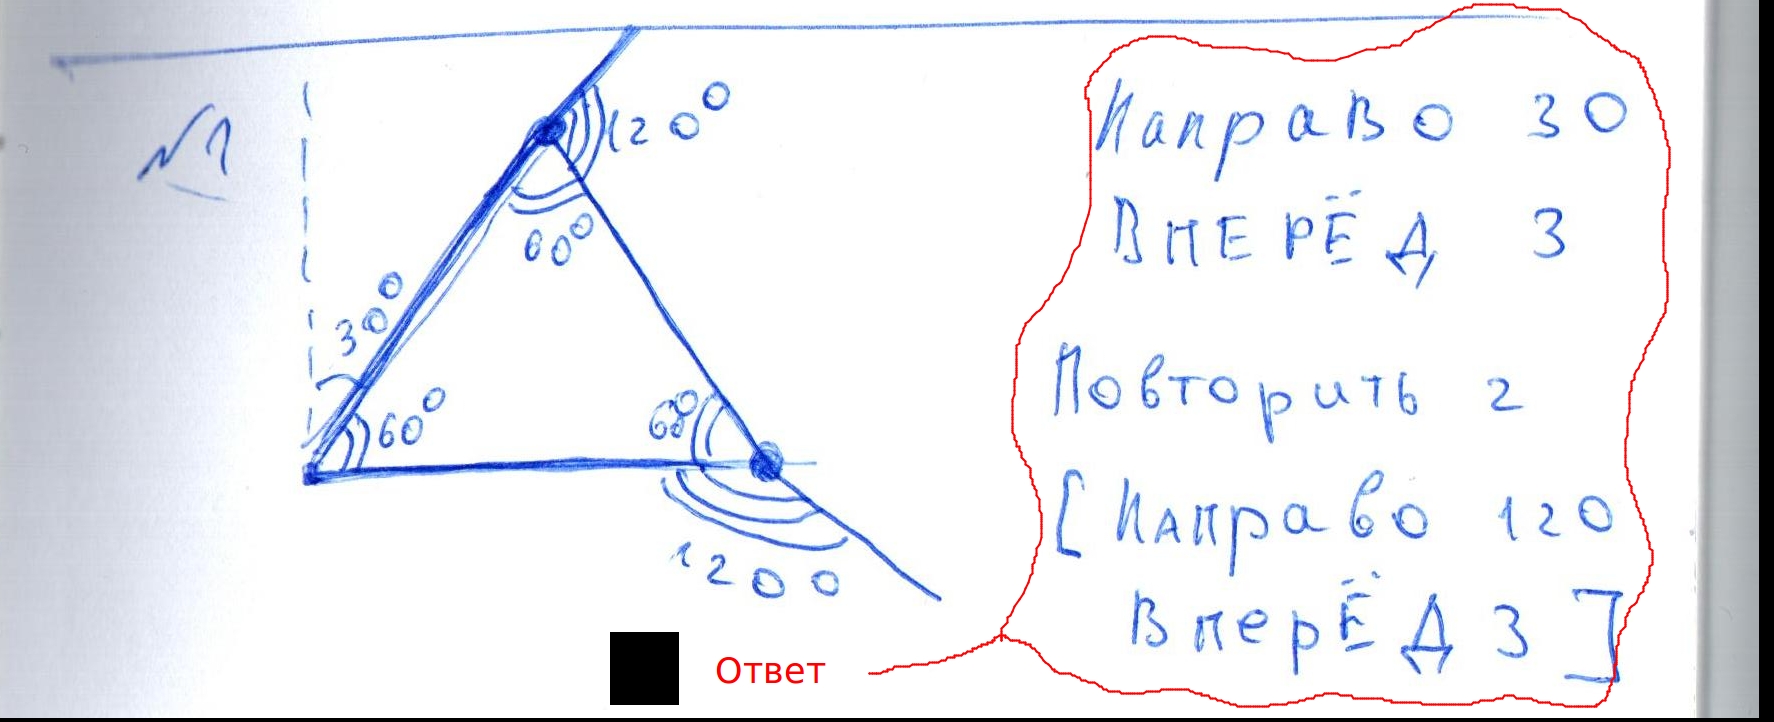 №1
120°
60°
30°
60°
60°
120°
Направо 30
ВПЕРЁД 3
Повторить 2
[Направо 120
ВперЁД 3]
Ответ